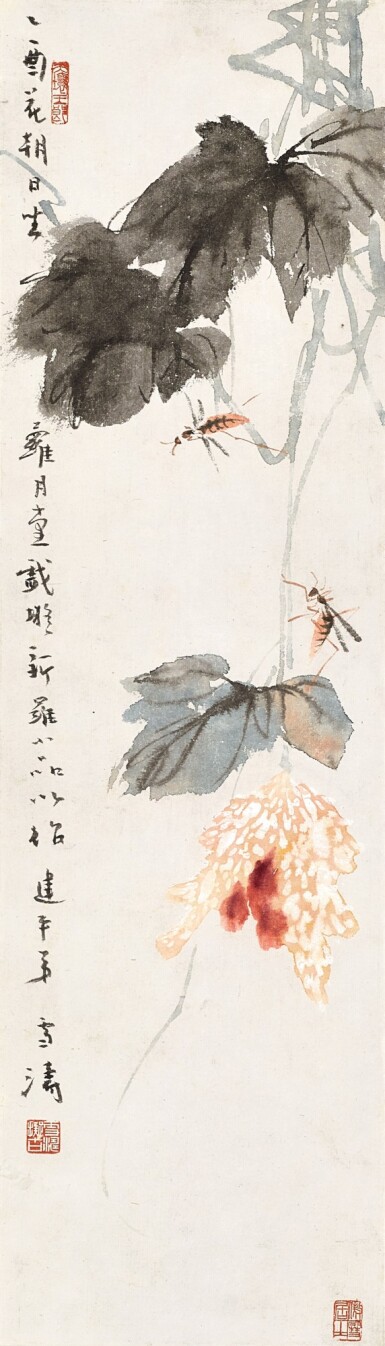 乙酉花朝日坐蘿月堂戲臨新羅小品以貽建平弟雪濤